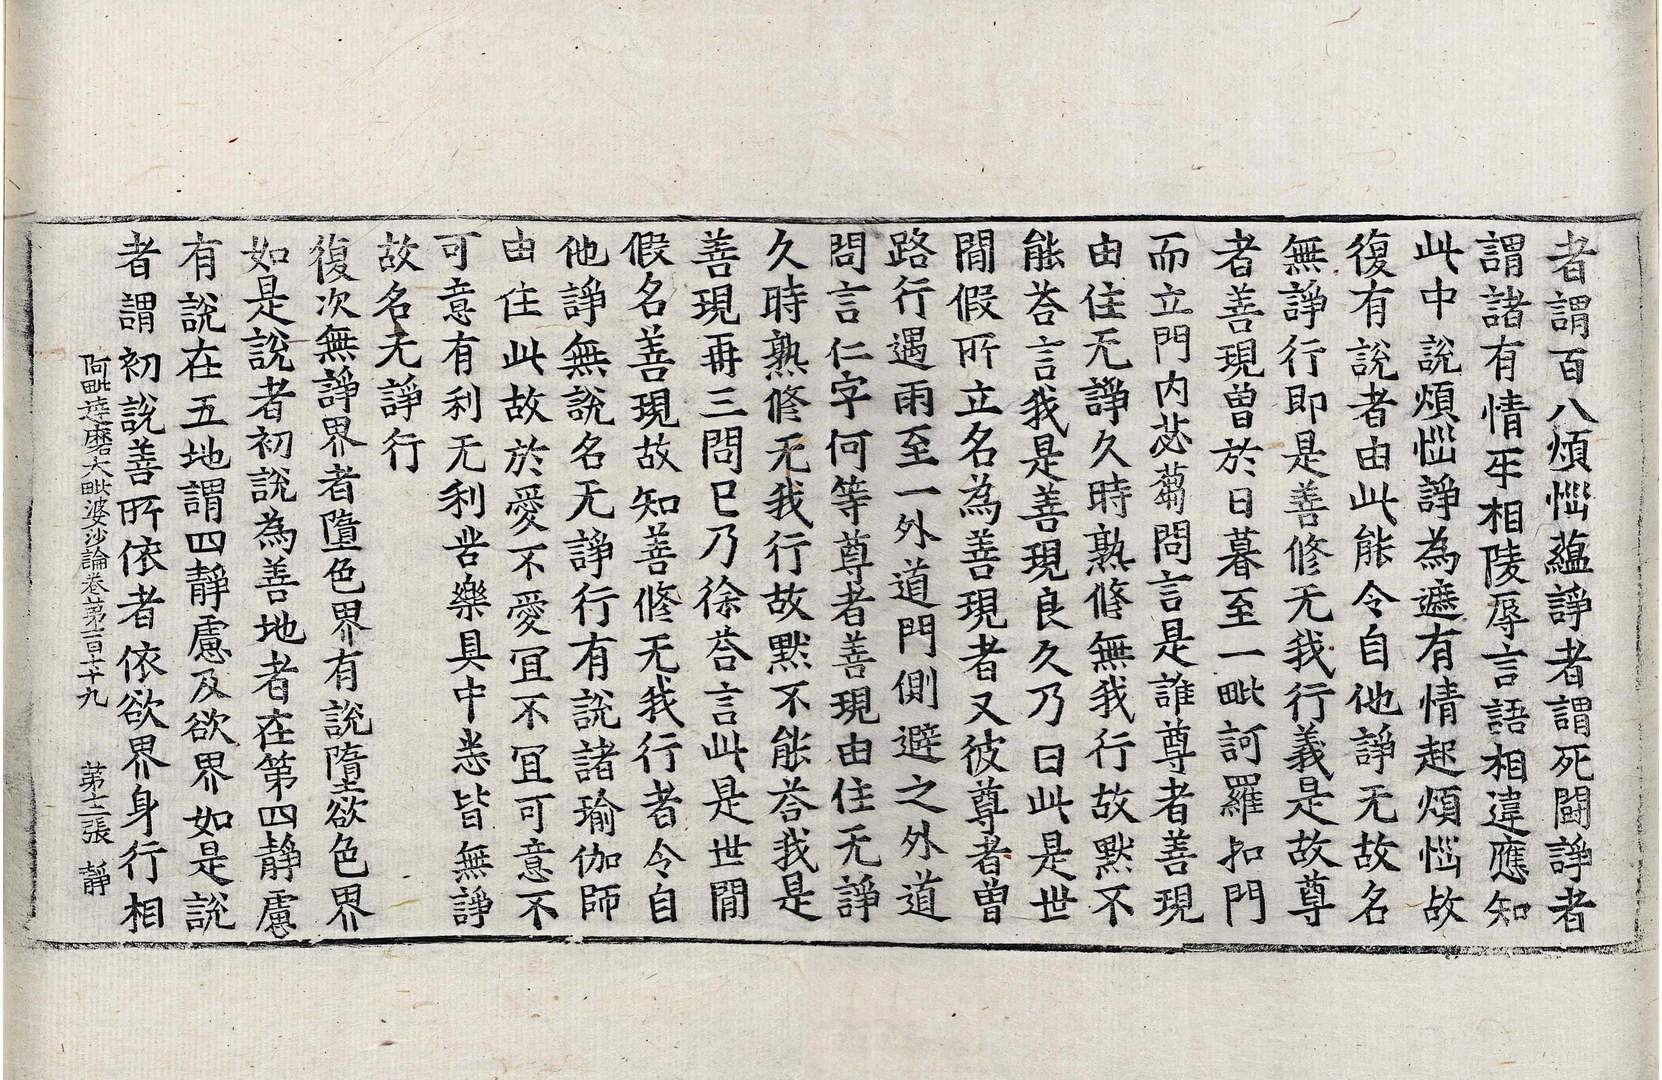 者謂百八煩惱蘊諍者謂死鬪諍者
謂諸有情㸦相陵辱言語相違應知
此中說煩惱諍為遮有情起煩惱故
復有說者由此能令自他諍无故名
無諍行即是善修无我行義是故尊
者善現曾於日暮至一毗訶羅扣門
而立門內苾蒭問言是誰尊者善現
由住无諍久時熟修無我行故默不
能荅言我是善現良久乃曰此是世
間假所立名為善現者又彼尊者曾
路行遇雨至一外道門側避之外道
問言仁字何等尊者善現由住无諍
久時熟修无我行故默不能荅我是
善現再三問已乃徐荅言此是世間
假名善現故知善修无我行者令自
他諍無說名无諍行有說諸瑜伽師
由住此故於愛不愛冝不冝可意不
可意有利无利苦樂具中悉皆無諍
故名无諍行
復次無諍界者墮色界有說墮欲色界
如是說者初說為善地者在第四靜慮
有說在五地謂四靜慮及欲界如是說
者謂初說善所依者依欲界身行相
阿毗達磨大毗婆沙論卷苐一百七十九　苐十二張　靜